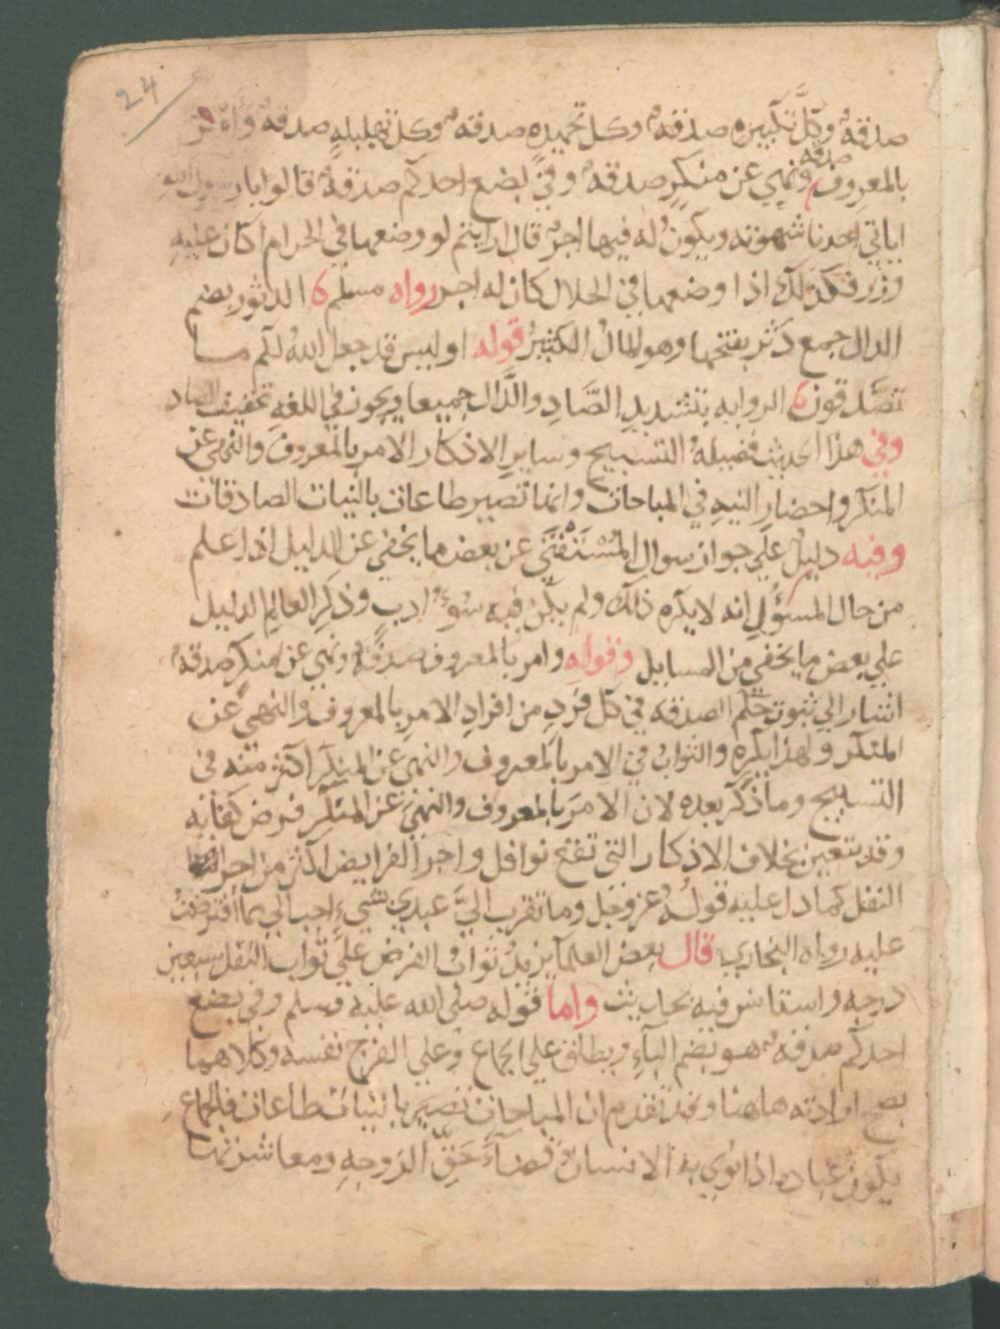 24
صدقةٌ وكلَّ تكبيره صدقةٌ وكل تحميدهٍ صدقةٌ وكل تهليلهٍ صدقةٌ وأمر
بالمعروف صدقة ونهي عن منكرٍ صدقةٌ وفي بضع احدكم صدقةٌ قالوا يا رسول الله
اياتي احدنا شهوته ويكون له فيها اجرٌ قال ارايتم لو وضعها في الحرام اكان عليه
وزر فكذلك اذا وضعها في الحلال كان له اجر رواه مسلم الدثور بضم
الدال جمع دَثر بفتحها وهو المال الكثيرُ قوله اوليس قد جعل اللهُ لكم ما
تصَّدقون الروايه بتشديدِ الصَّادِ والدَّال جميعا ويجوز في اللغهِ تخفيف الصاد
وفي هذا الحديث فضيلهُ التسبيح وساير الاذكار الامر بالمعروف والنهي عن
المنكر واحضار النيهِ في المباحات وانما تصير طاعات بالنيات الصادقات
وفيه دليلٌ علي جواز سوال المُسْتَفْتي عن بعض ما يخفي عن الدليل اذا علم
من حال المسؤُلِ انه لا يكره ذلك ولم يكن فيه سُوءُ ادبٍ وذكر العالم الدليل
علي بعض ما يخفي من المسايل وقوله وامر بالمعروف صدقةٌ ونهي عن منكر صدقةٌ
اشار الي ثبوت حكم الصدقه في كل فردٍ من افرادِ الامر بالمعروف والنهي عن
المنكر ولهذا نكره والثوابُ في الامر بالمعروف والنهي عن المنكرِ اكثر منه في
التسبيح وما ذكر بعده لان الامرَ بالمعروف والنهيَ عن المنكرِ فرض كفايه
وقد يتعين بخلاف الاذكار التي تقع نوافل واجر الفرايض اكثر من اجر
النفل كما دل عليه قولُهُ عز وجل وما تقرب اليَّ عبدي بشيءٍ احب الي مما افترضتُ
عليه رواه البخاري قال بعض العلما يزيدُ ثوابُ الفرض علي ثواب النفل سبعين
درجه واستانس فيه بحديث واما قوله صلي الله عليه وسلم وفي بضع
احدكم صدقةٌ هو بضم الباءِ ويطلق علي الجماع وعلي الفرج نفسه وكلاهما
يصح ارادته هاهنا وقد تقدم ان المباحات تصير بالنيات طاعات فالجماع
يكون عبادة اذا نوي به الانسان قضآءَ حَقِّ الزوجه ومعاشرتها